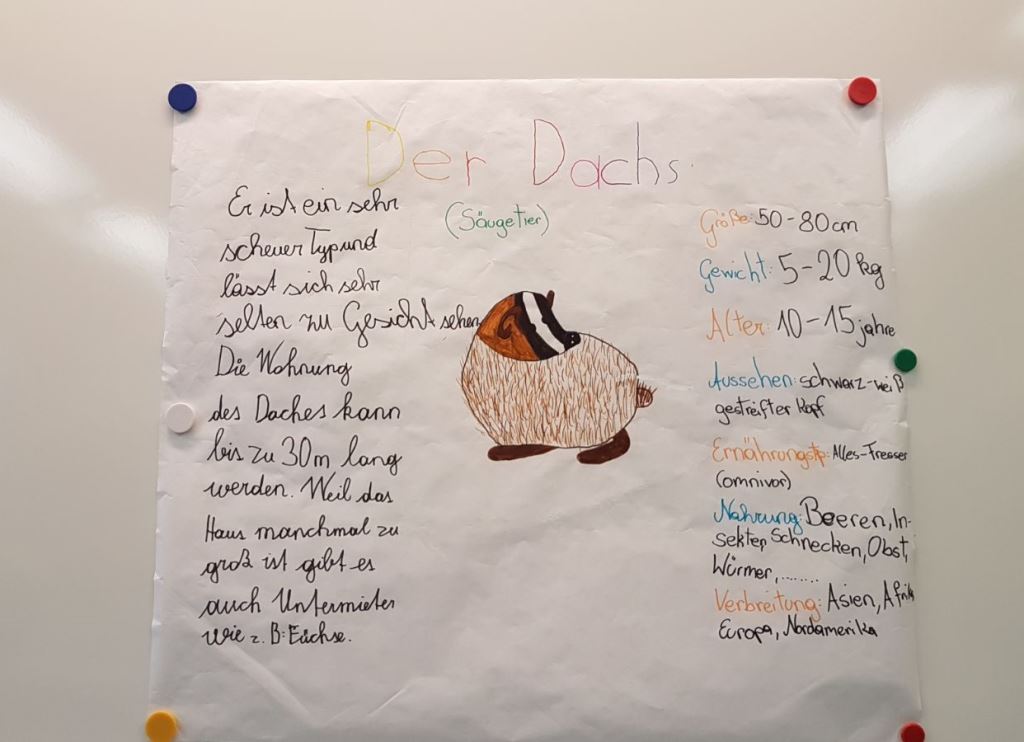 Der Dachs.
(Säugetier)
Er ist ein sehr
scheuer Typ und
lässt sich sehr
selten zu Gesicht sehen
Die Wohnung
des Daches kann
bis zu 30m lang
werden. Weil das
Haus manchmal zu
groß ist gibt es
auch Untermieter
wie z. B: Füchse.
Größe: 50-80cm
Gewicht: 5-20 kg
Alter: 10-15 jahre
Aussehen: schwarz-weiß
gestreifter Kopf
Ernährungstp: Alles-Fresser
(omnivor)
Nahrung: Beeren, In-
sekten, Schnecken, Obst,
Würmer, ........
Verbreitung: Asien, Afrika
Europa, Nordamerika